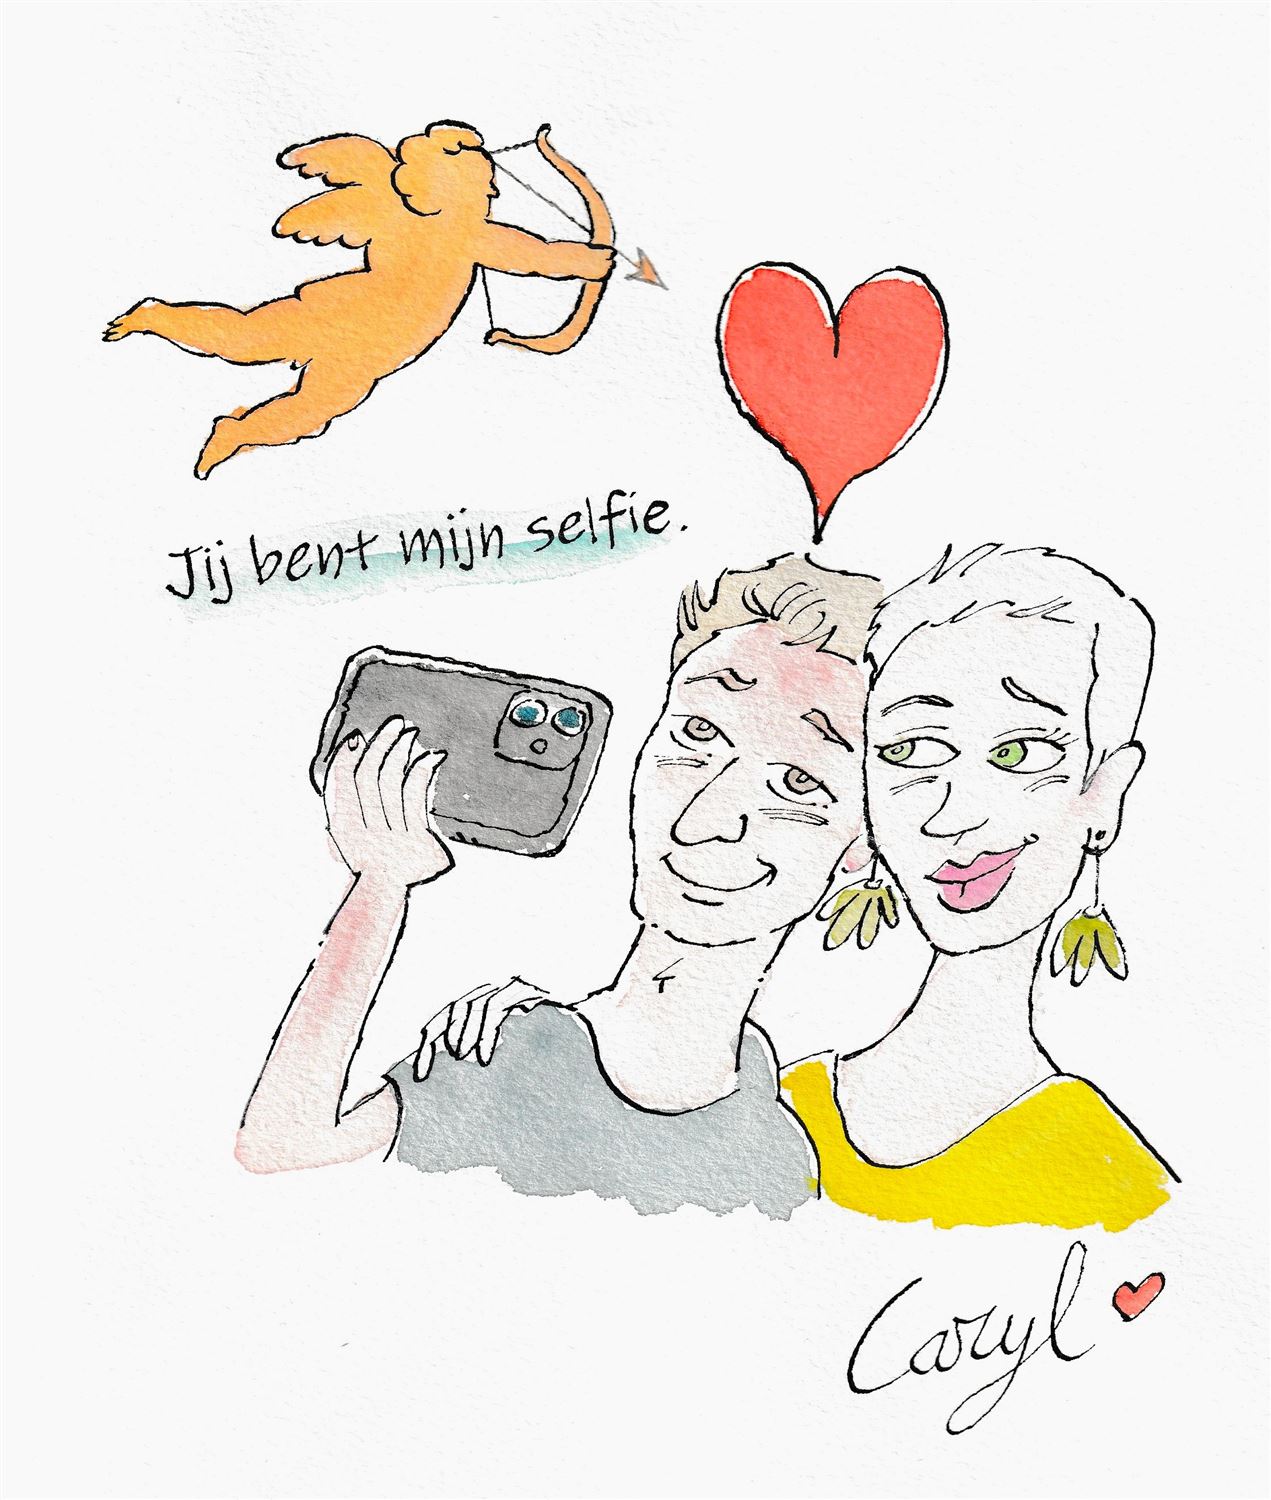 Jij bent mijn selfie.
Caryl